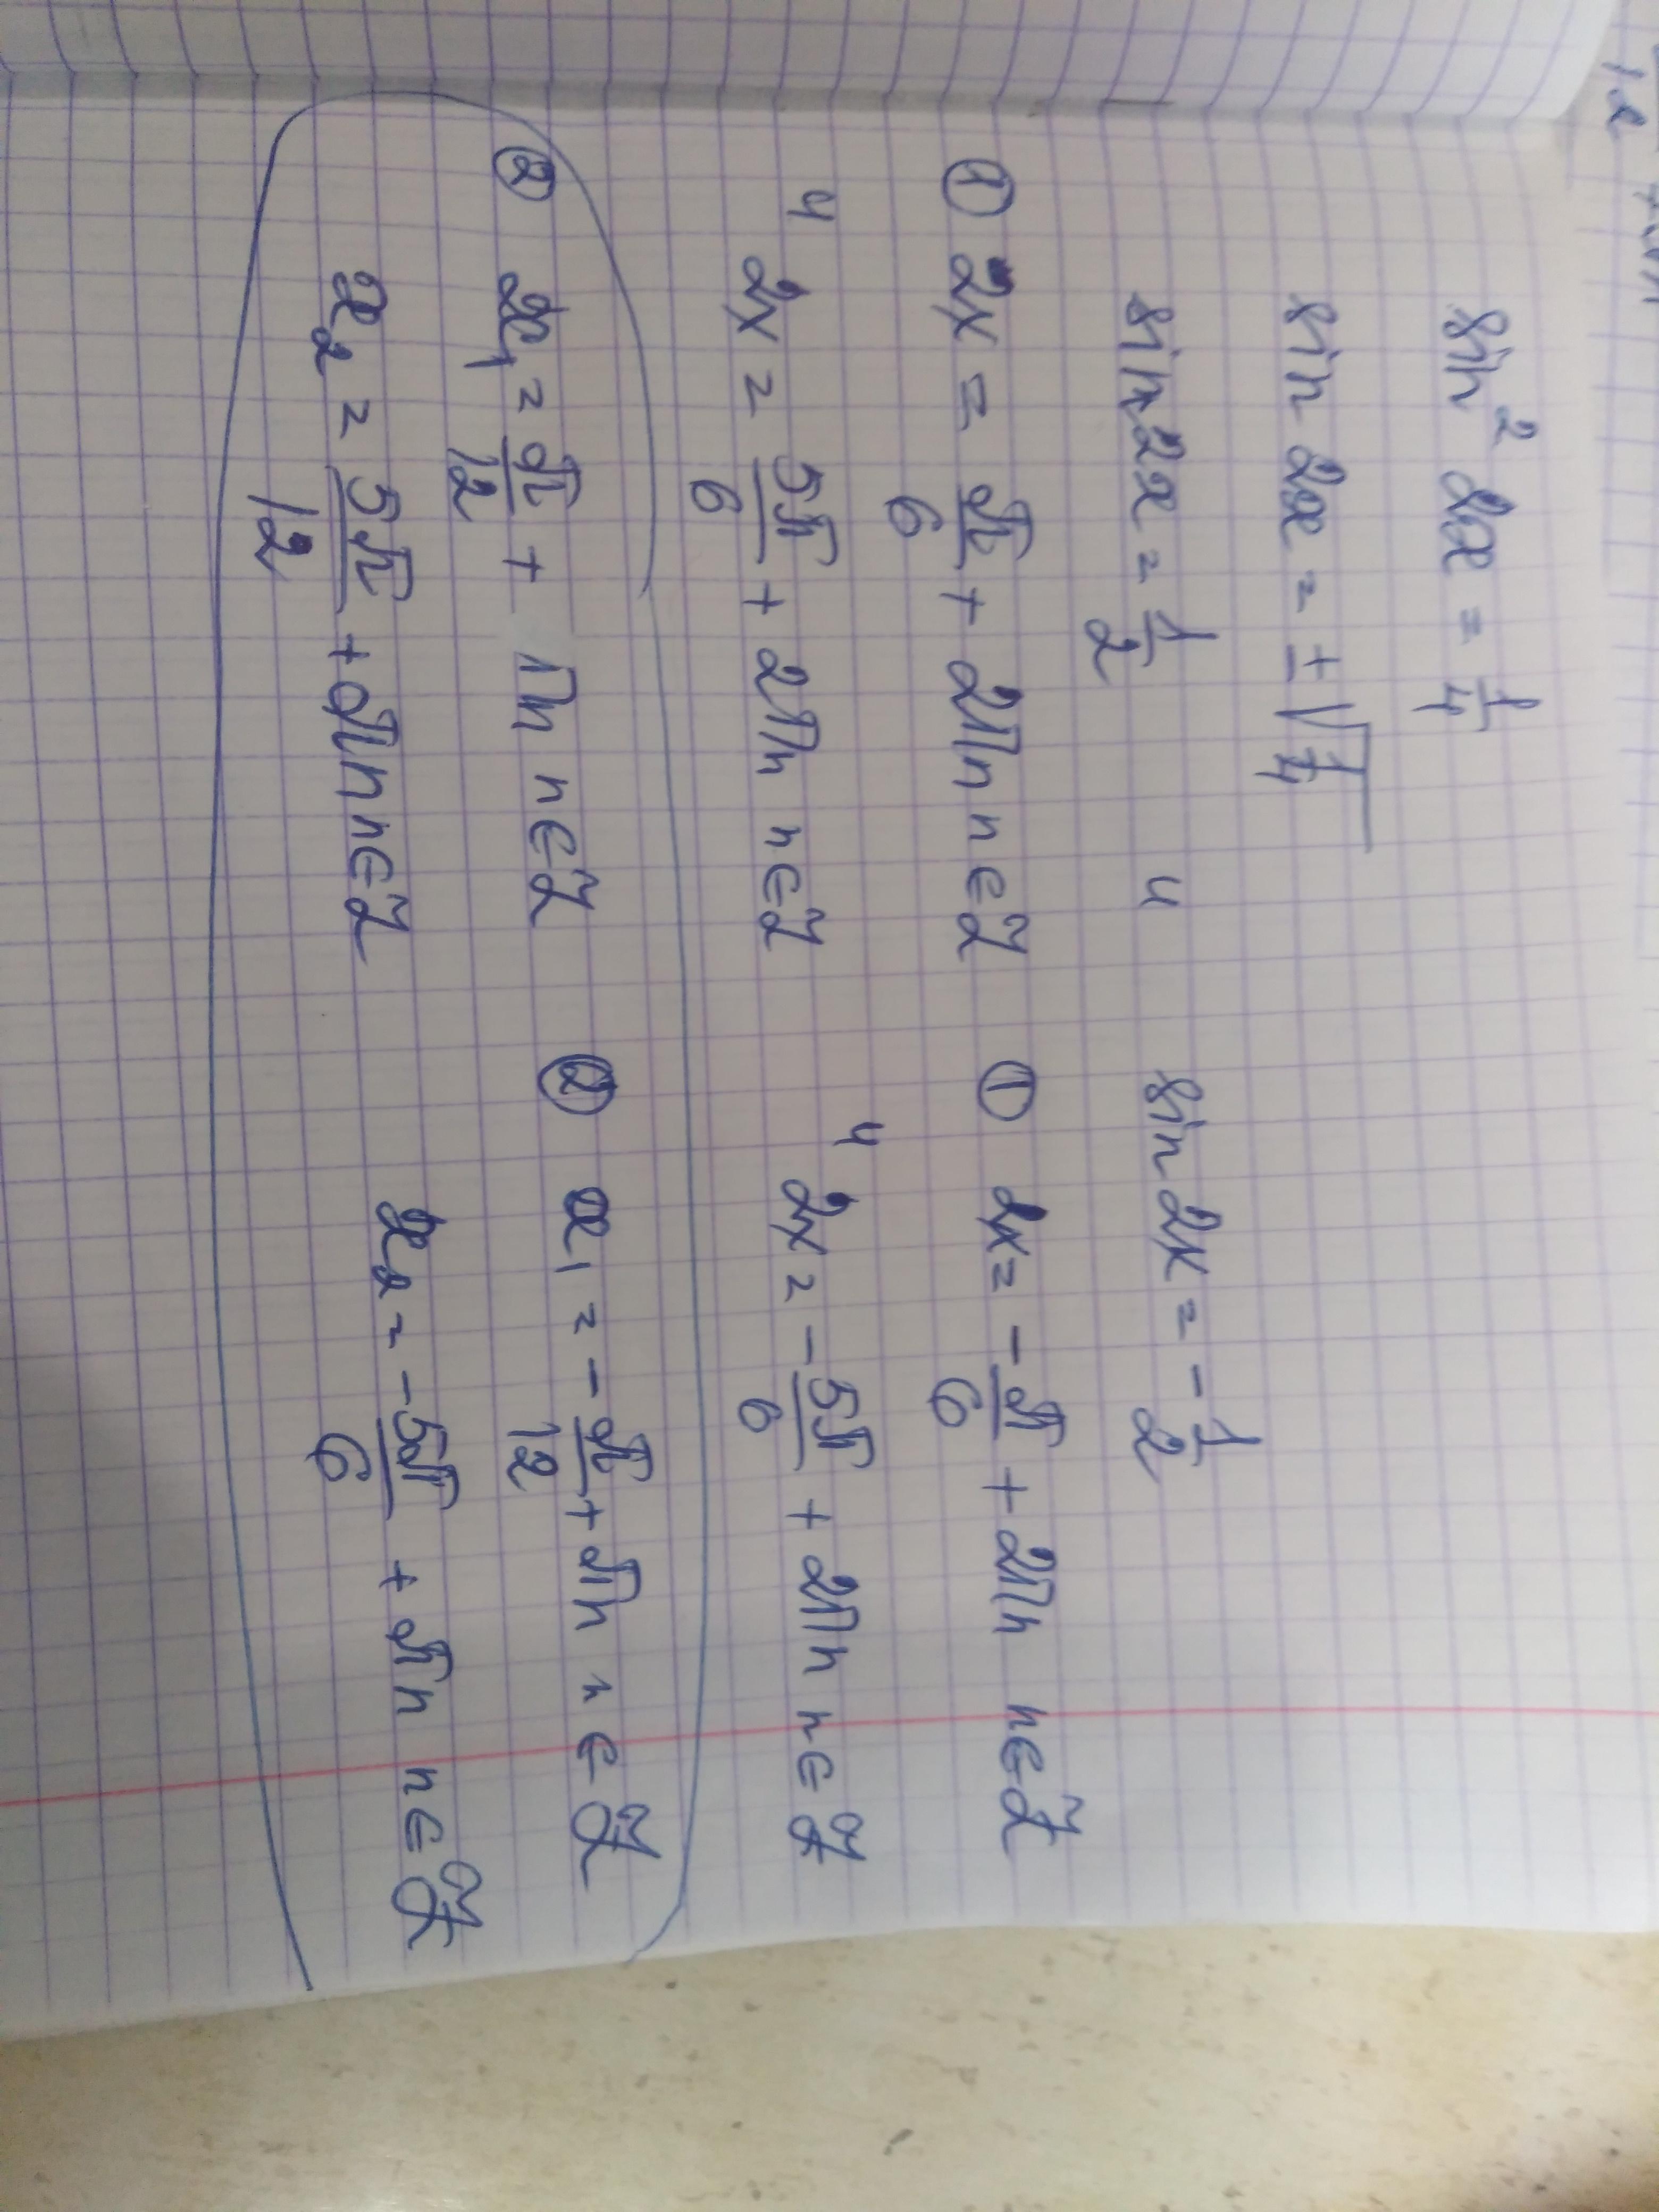 sin² 2x = 1/4
sin 2x = ±√(1/4)
sin 2x = 1/2 и sin 2x = -1/2
① 2x = π/6 + 2πn n∈Z ① 2x = -π/6 + 2πn n∈Z
и 2x = 5π/6 + 2πn n∈Z и 2x = -5π/6 + 2πn n∈Z
② x₁ = π/12 + πn n∈Z ② x₁ = -π/12 + πn n∈Z
x₂ = 5π/12 + πn n∈Z x₂ = -5π/6 + πn n∈Z